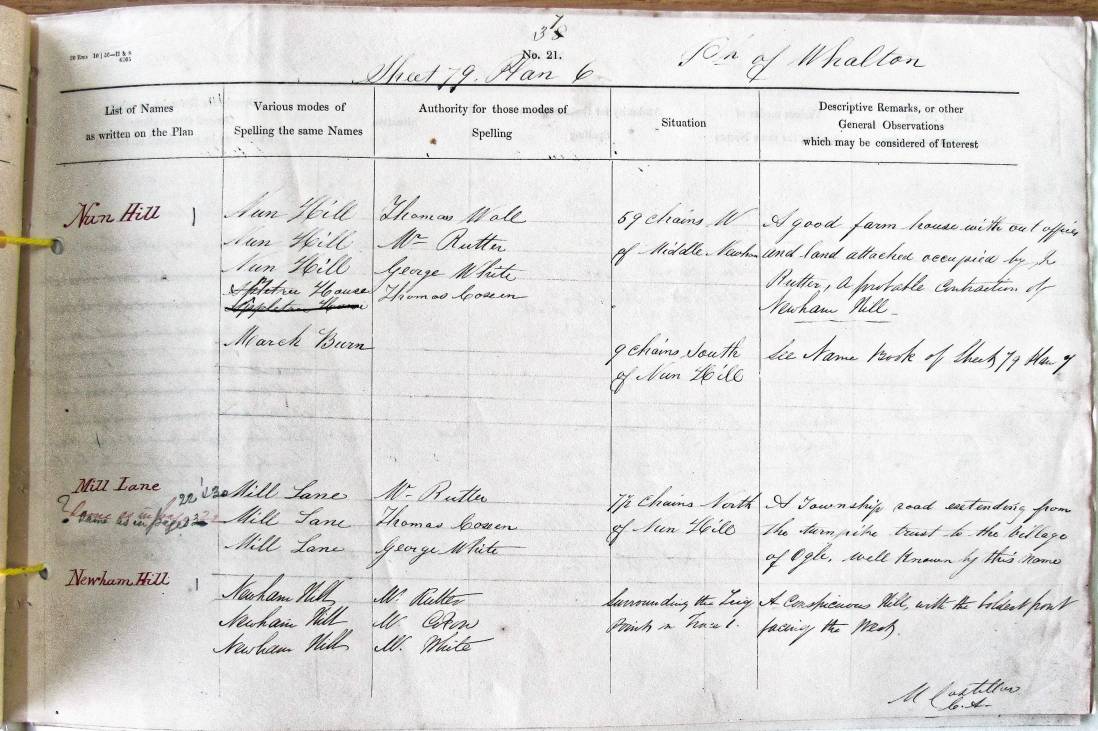 37
No. 21.
Sheet 79. Plan 6
Pn of Whalton
List of Names
as written on the Plan
Various modes of
Spelling the same Names
Authority for those modes of
Spelling
Situation
Descriptive Remarks, or other
General Observations
which may be considered of Interest
Nun Hill 1
Nun Hill
Nun Hill
Nun Hill
House
March Burn
Thomas Wall
Mr Rutter
George White
Thomas Cossen
59 chains W
of Middle Newham
9 chains South
of Nun Hill
A good farm house with out offices
and land attached occupied by
Rutter, A probable contraction of
Newham Hill
See Name Book of Sheet 79 Plan 7
Mill Lane
Same as in page
Mill Lane
Mill Lane
Mill Lane
Mr Rutter
Thomas Cossen
George White
chains North
of Nun Hill
A Township road extending from
the turnpike trust to the Village
of Ogle, well known by this name
Newham Hill 1
Newham Hill
Newham Hill
Newham Hill
Mr. Rutter
Mr.
Mr. White
Surrounding the Trig
Point in Trace 1.
A Conspicuous Hill, with the boldest front
facing the West.